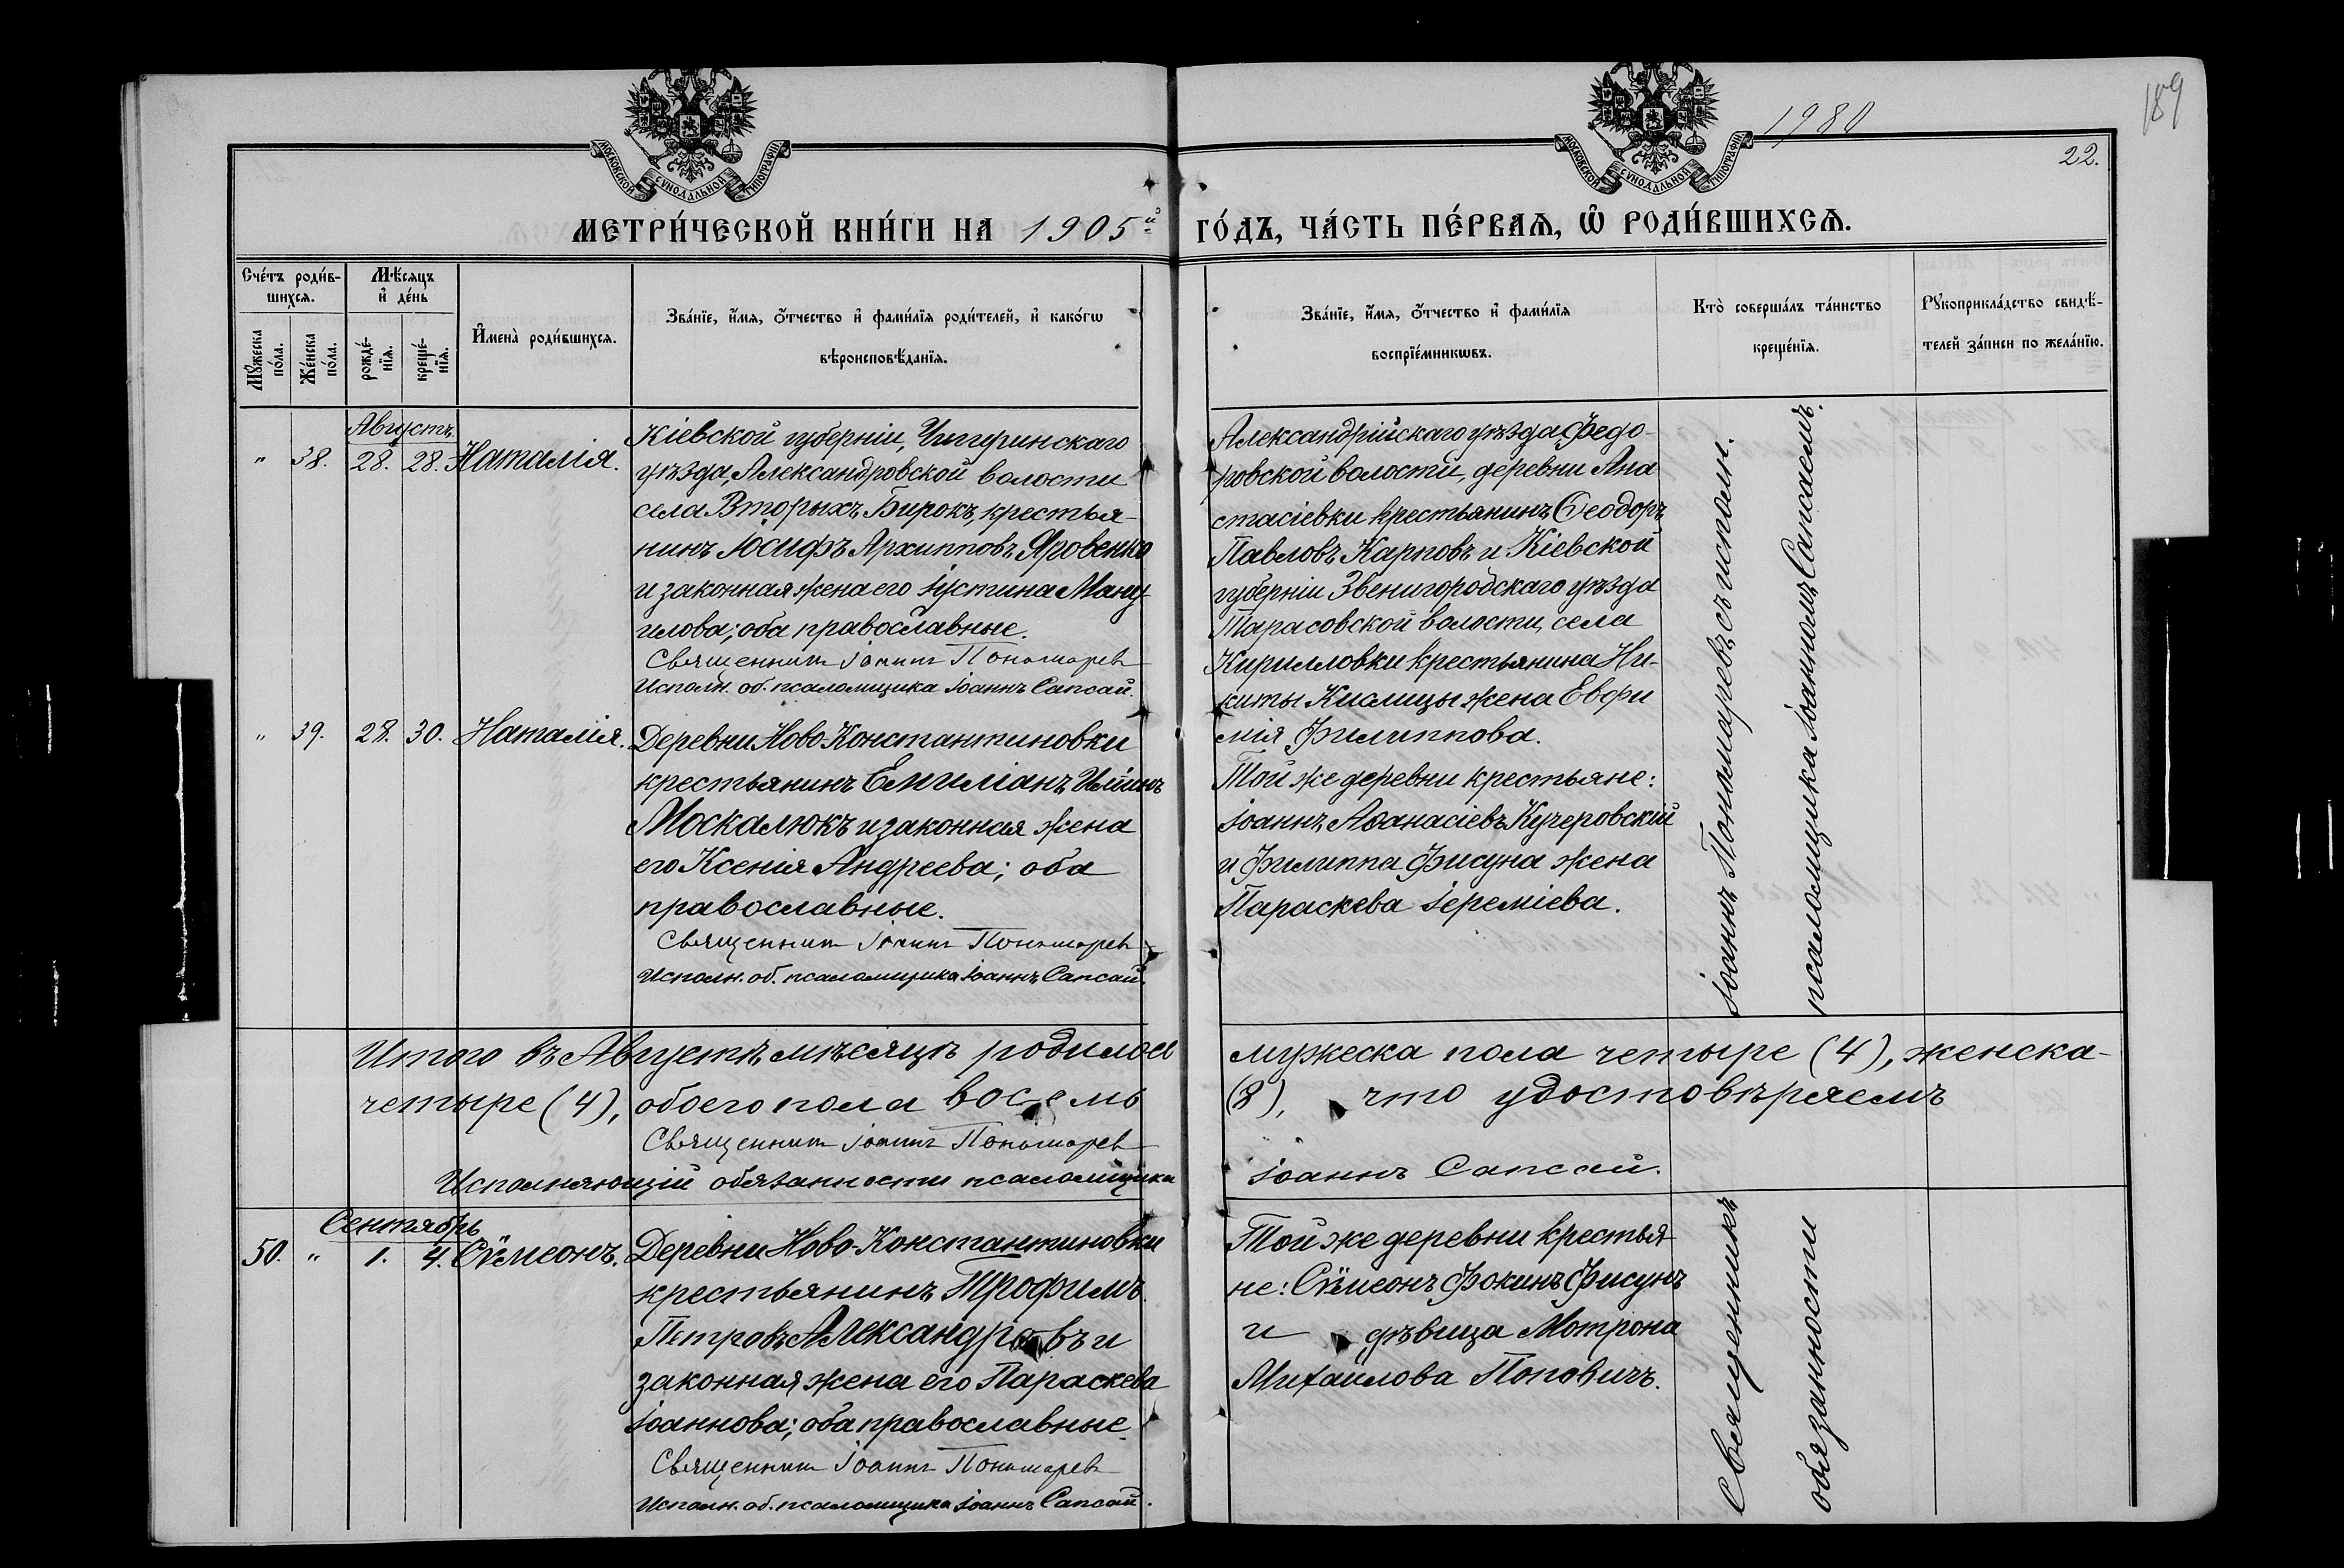 189
1980
22.
МОСКОВСКОЙ СѴНОДАЛЬНОЙ ТИПОГРАФІИ
МОСКОВСКОЙ СѴНОДАЛЬНОЙ ТИПОГРАФІИ
МЕТРИ́ЧЕСКОЙ КНИ́ГИ НА 1905й ГО́ДЪ, ЧА́СТЬ ПЕ́РВАѦ, Ѡ҆ РОДИ́ВШИХСѦ.
Сче́тъ роди́в-
шихсѧ.
Мꙋ́жеска
по́ла.
Же́нска
по́ла.
Мѣ́сяцъ
и҆ де́нь
рожде́-
нїѧ.
креще́-
нїѧ.
И҆мена̀ роди́вшихсѧ.
Зва́нїе, и҆́мѧ, ѻ҆́тчество и҆ фами́лїѧ роди́телей, и҆ како́гѡ
вѣроисповѣ́данїѧ.
Зва́нїе, и҆́мѧ, ѻ҆́тчество и҆ фами́лїѧ
воспрїе́мникѡвъ.
Кто̀ соверша́лъ та́инство
креще́нїѧ.
Рꙋкоприкла́дство свидѣ́-
телей за́писи по жела́нїю.
Августъ
" 38. 28. 28. Наталія.
Кіевской губерніи, Чигиринскаго
уѣзда, Александровской волости
села Вторыхъ Бирокъ, крестья-
нинъ Іосифъ Архипповъ Яровенко
и законная жена его Іустина Ману-
илова; оба православные.
Священникъ Іоаннъ Пономаревъ
Исполн. об. псаломщика Іоаннъ Сапсай.
Александрійскаго уѣзда Ѳедо-
ровской волости, деревни Ана
стасіевки крестьянинъ Ѳеодоръ
Павловъ Карповъ и Кіевской
губерніи Звенигородскаго уѣзда
Тарасовской волости, села
Кирилловки крестьянина Ни-
киты Кислицы жена Евфи
мія Филиппова.
" 39. 28. 30. Наталія.
Деревни Ново Константиновки
крестьянинъ Емиліанъ Ильинъ
Москалюкъ и законная жена
его Ксенія Андреева; оба
православные.
Священникъ Іоаннъ Пономаревъ
Исполн. об. псаломщика Іоаннъ Сапсай.
Той же деревни крестьяне:
Іоаннъ Аѳанасіевъ Кучеровскій
и Филиппа Фисуна жена
Параскева Іереміева.
Іоаннъ Пономаревъ съ исполн.
псаломщика Іоанномъ Сапсаемъ.
Итого въ Августѣ мѣсяцѣ родилось мужеска пола четыре (4), женска-
четыре (4), обоего пола восемь (8), что удостовѣряемъ
Священникъ Іоаннъ Пономаревъ
Исполняющій обязанности псаломщика Іоаннъ Сапсай.
Сентябрь
50. " 1. 4. Сѵмеонъ.
Деревни Ново-Константиновки
крестьянинъ Трофимъ
Петровъ Александровъ и
законная жена его Параскева
Іоаннова; оба православные.
Священникъ Іоаннъ Пономаревъ
Исполн. об. псаломщика Іоаннъ Сапсай.
Той же деревни крестья
не: Сѵмеонъ Фокинъ Фисунъ
и дѣвица Мотрона
Михаилова Поповичъ.
Священникъ
обязанности